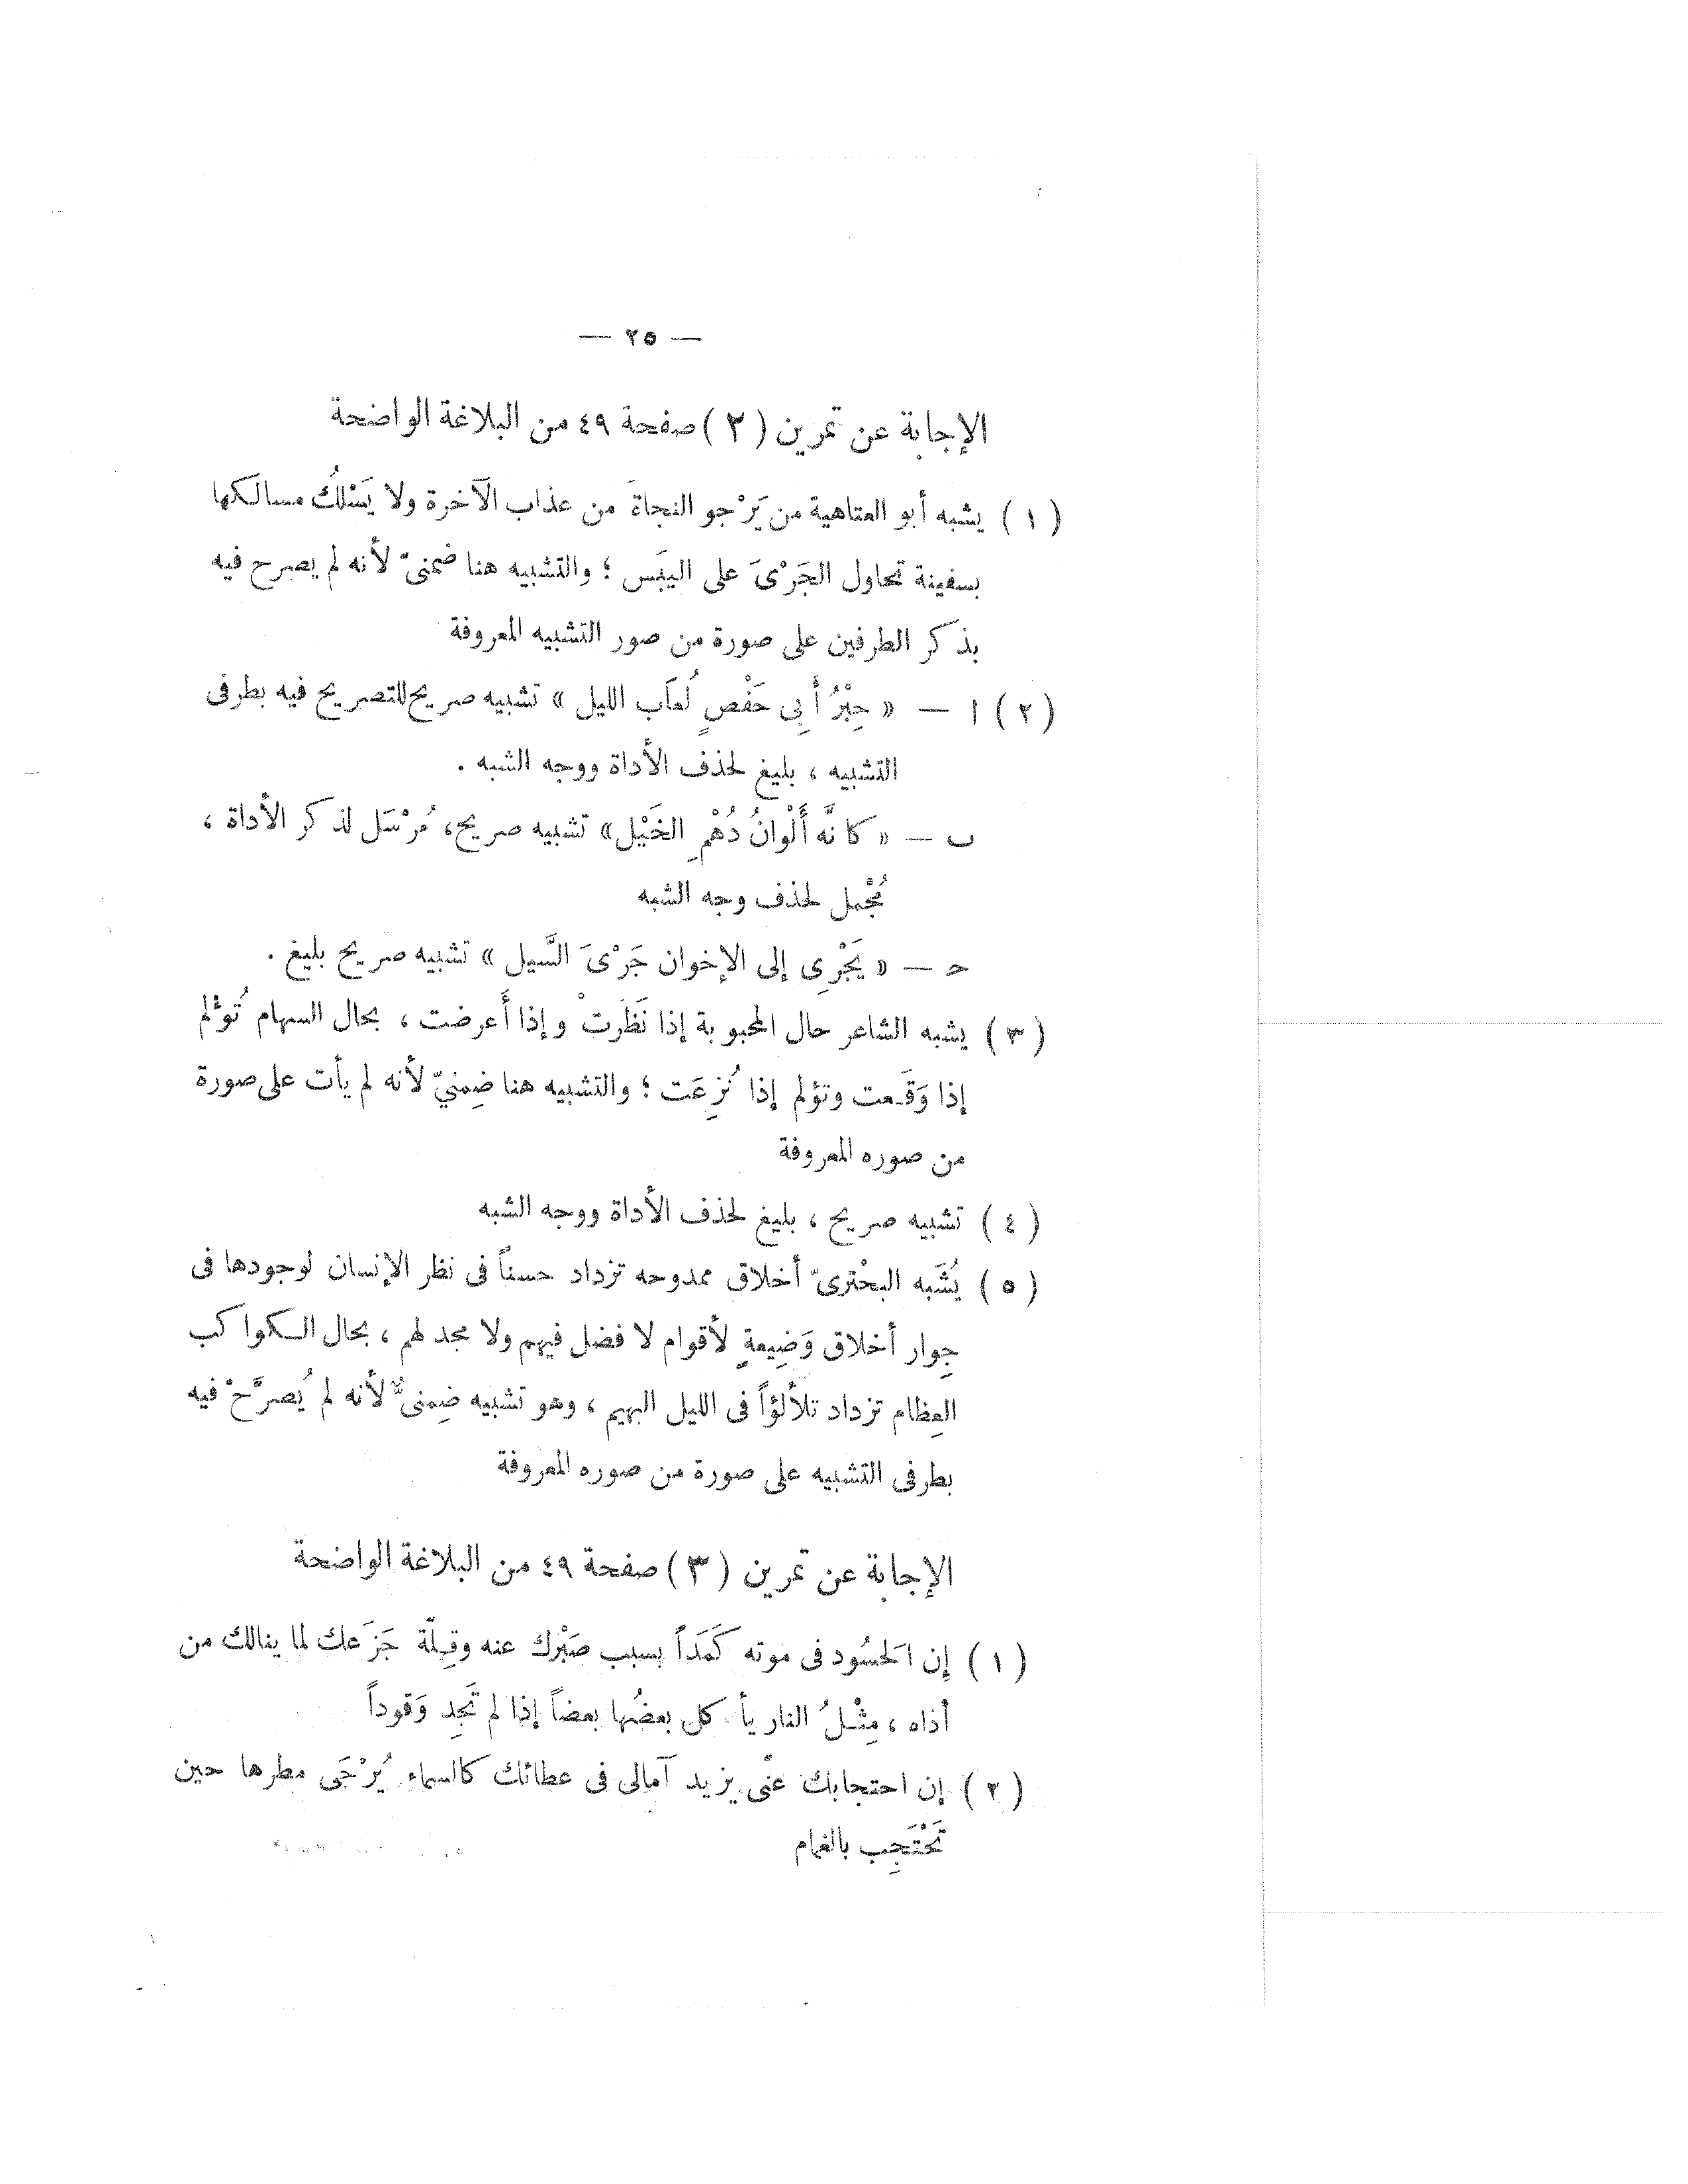 — ٢٥ —
الإجابة عن تمرين (٢) صفحة ٤٩ من البلاغة الواضحة
(١) يشبه أبو العتاهية من يَرْجو النجاةَ من عذاب الآخرة ولا يَسْلُك مسالكها
بسفينة تحاول الجَرْىَ على اليبَس ؛ والتشبيه هنا ضمنىّ لأنه لم يصرح فيه
بذكر الطرفين على صورة من صور التشبيه المعروفة
(٢) ا — « حِبْرُ أَبِى حَفْصٍ لُعَاب الليل » تشبيه صريح للتصريح فيه بطرفى
التشبيه ، بليغ لحذف الأداة ووجه الشبه .
ب — « كانَّه أَلْوانُ دُهْمِ الخَيْل » تشبيه صريح، مُرْسَل لذكر الأداة ،
مُجْمل لحذف وجه الشبه
حـ — « يَجْرِى إلى الإخوان جَرْىَ السَّيل » تشبيه صريح بليغ .
(٣) يشبه الشاعر حال المحبوبة إذا نَظَرَتْ وإذا أَعرضت ، بحال السهام تُؤْلم
إذا وَقَعت وتؤلم إذا نُزِعَت ؛ والتشبيه هنا ضِمنيّ لأنه لم يأت على صورة
من صوره المعروفة
(٤) تشبيه صريح ، بليغ لحذف الأداة ووجه الشبه
(٥) يُشَبه البحْترىّ أخلاق ممدوحه تزداد حسناً فى نظر الإنسان لوجودها فى
جِوار أخلاق وَضِيعةٍ لأقوام لا فضل فيهم ولا مجد لهم ، بحال الكواكب
العِظام تزداد تلألؤاً فى الليل البهيم ، وهو تشبيه ضِمنىٌّ لأنه لم يُصرَّحْ فيه
بطرفى التشبيه على صورة من صوره المعروفة
الإجابة عن تمرين (٣) صفحة ٤٩ من البلاغة الواضحة
(١) إن الَحسُود فى موته كَمَداً بسبب صَبْرك عنه وقِلّة جَزَعك لما ينالك من
أذاه ، مِثْلُ النار يأكل بعضُها بعضاً إذا لم تَجِد وَقوداً
(٢) إن احتجابك عنّى يزيد آمالى فى عطائك كالسماء يُرْجَى مطرها حين
تَحْتَجِب بالغمام